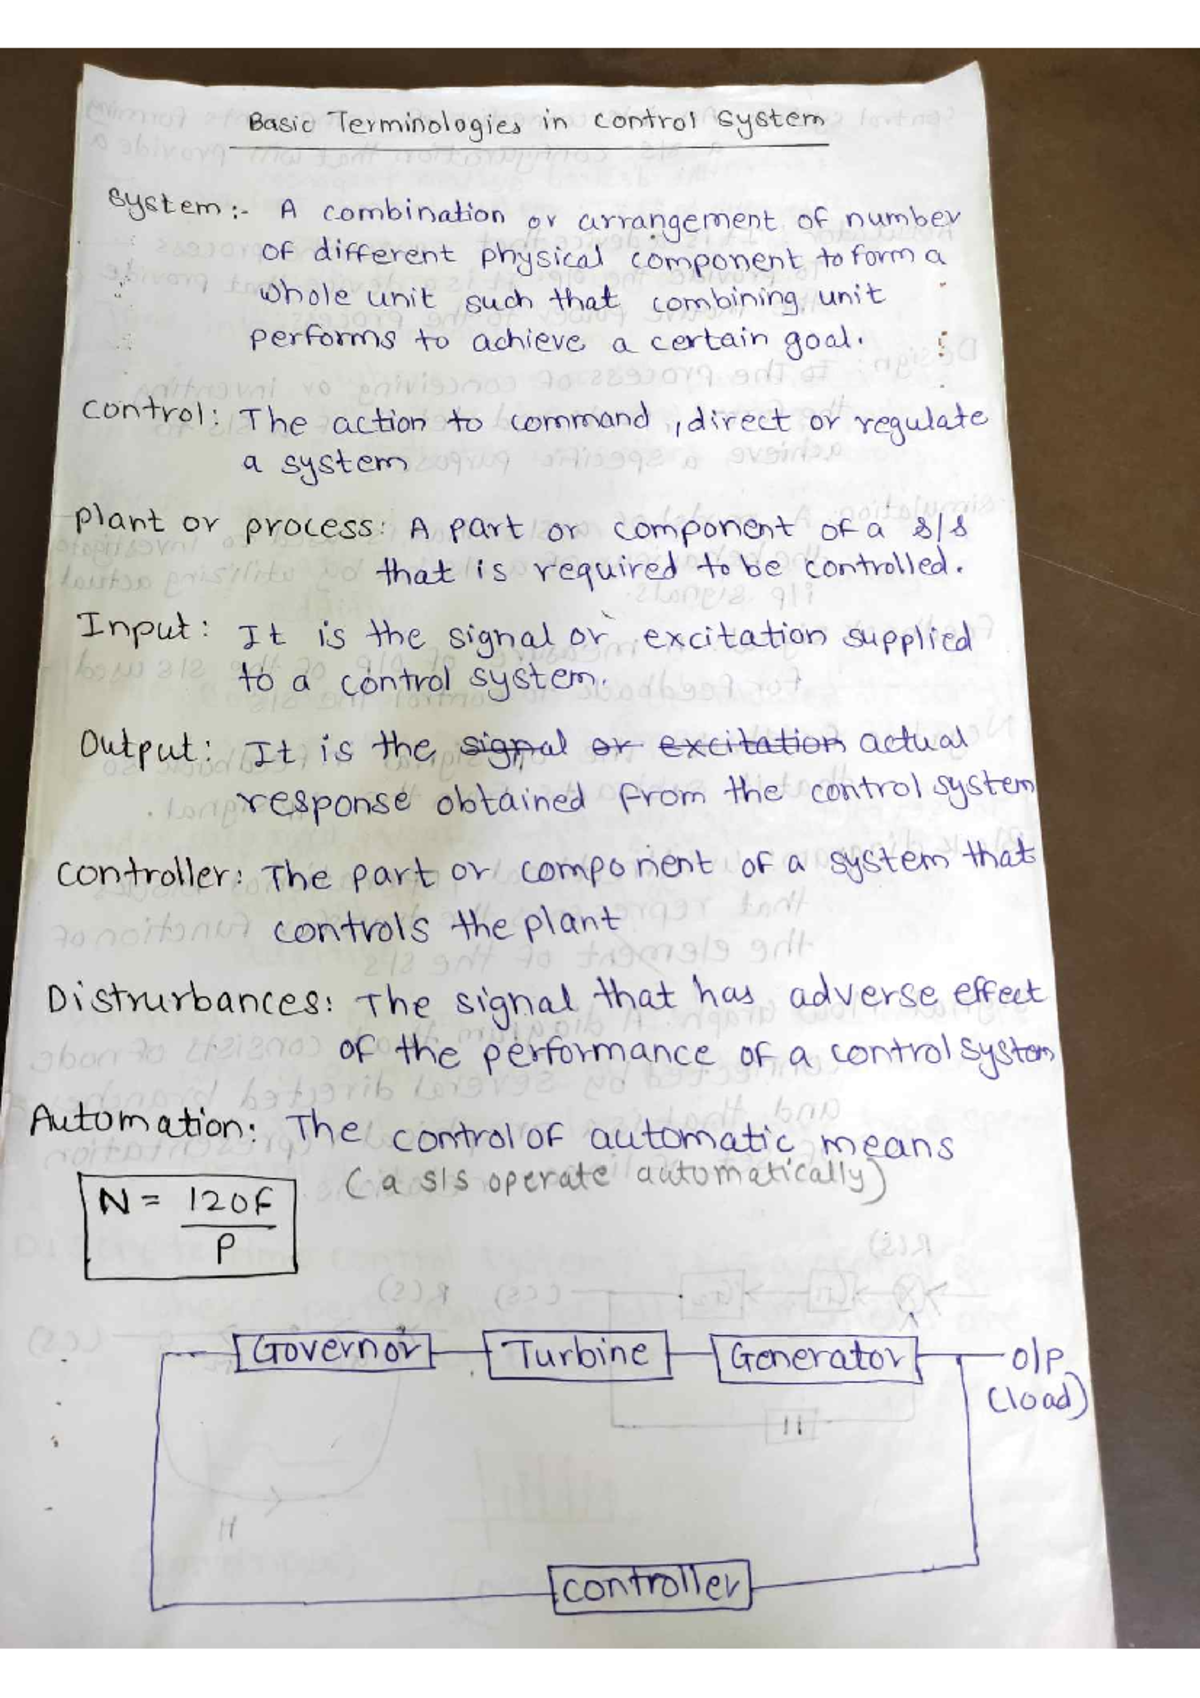 Basic Terminologies in control system
system:- A combination or arrangement of number
of different physical component to form a
whole unit such that combining unit
performs to achieve a certain goal.
control: The action to command, direct or regulate
a system
Plant or process: A part or component of a s/s
that is required to be controlled.
Input: It is the signal or excitation supplied
to a control system.
Output: It is the signal or excitation actual
response obtained from the control system
controller: The part or component of a system that
controls the plant
Distrurbances: The signal that has adverse effect
of the performance of a control system
Automation: The control of automatic means
(a s/s operate automatically)
N = 120F
P
Governor Turbine Generator O/P
(load)
controller